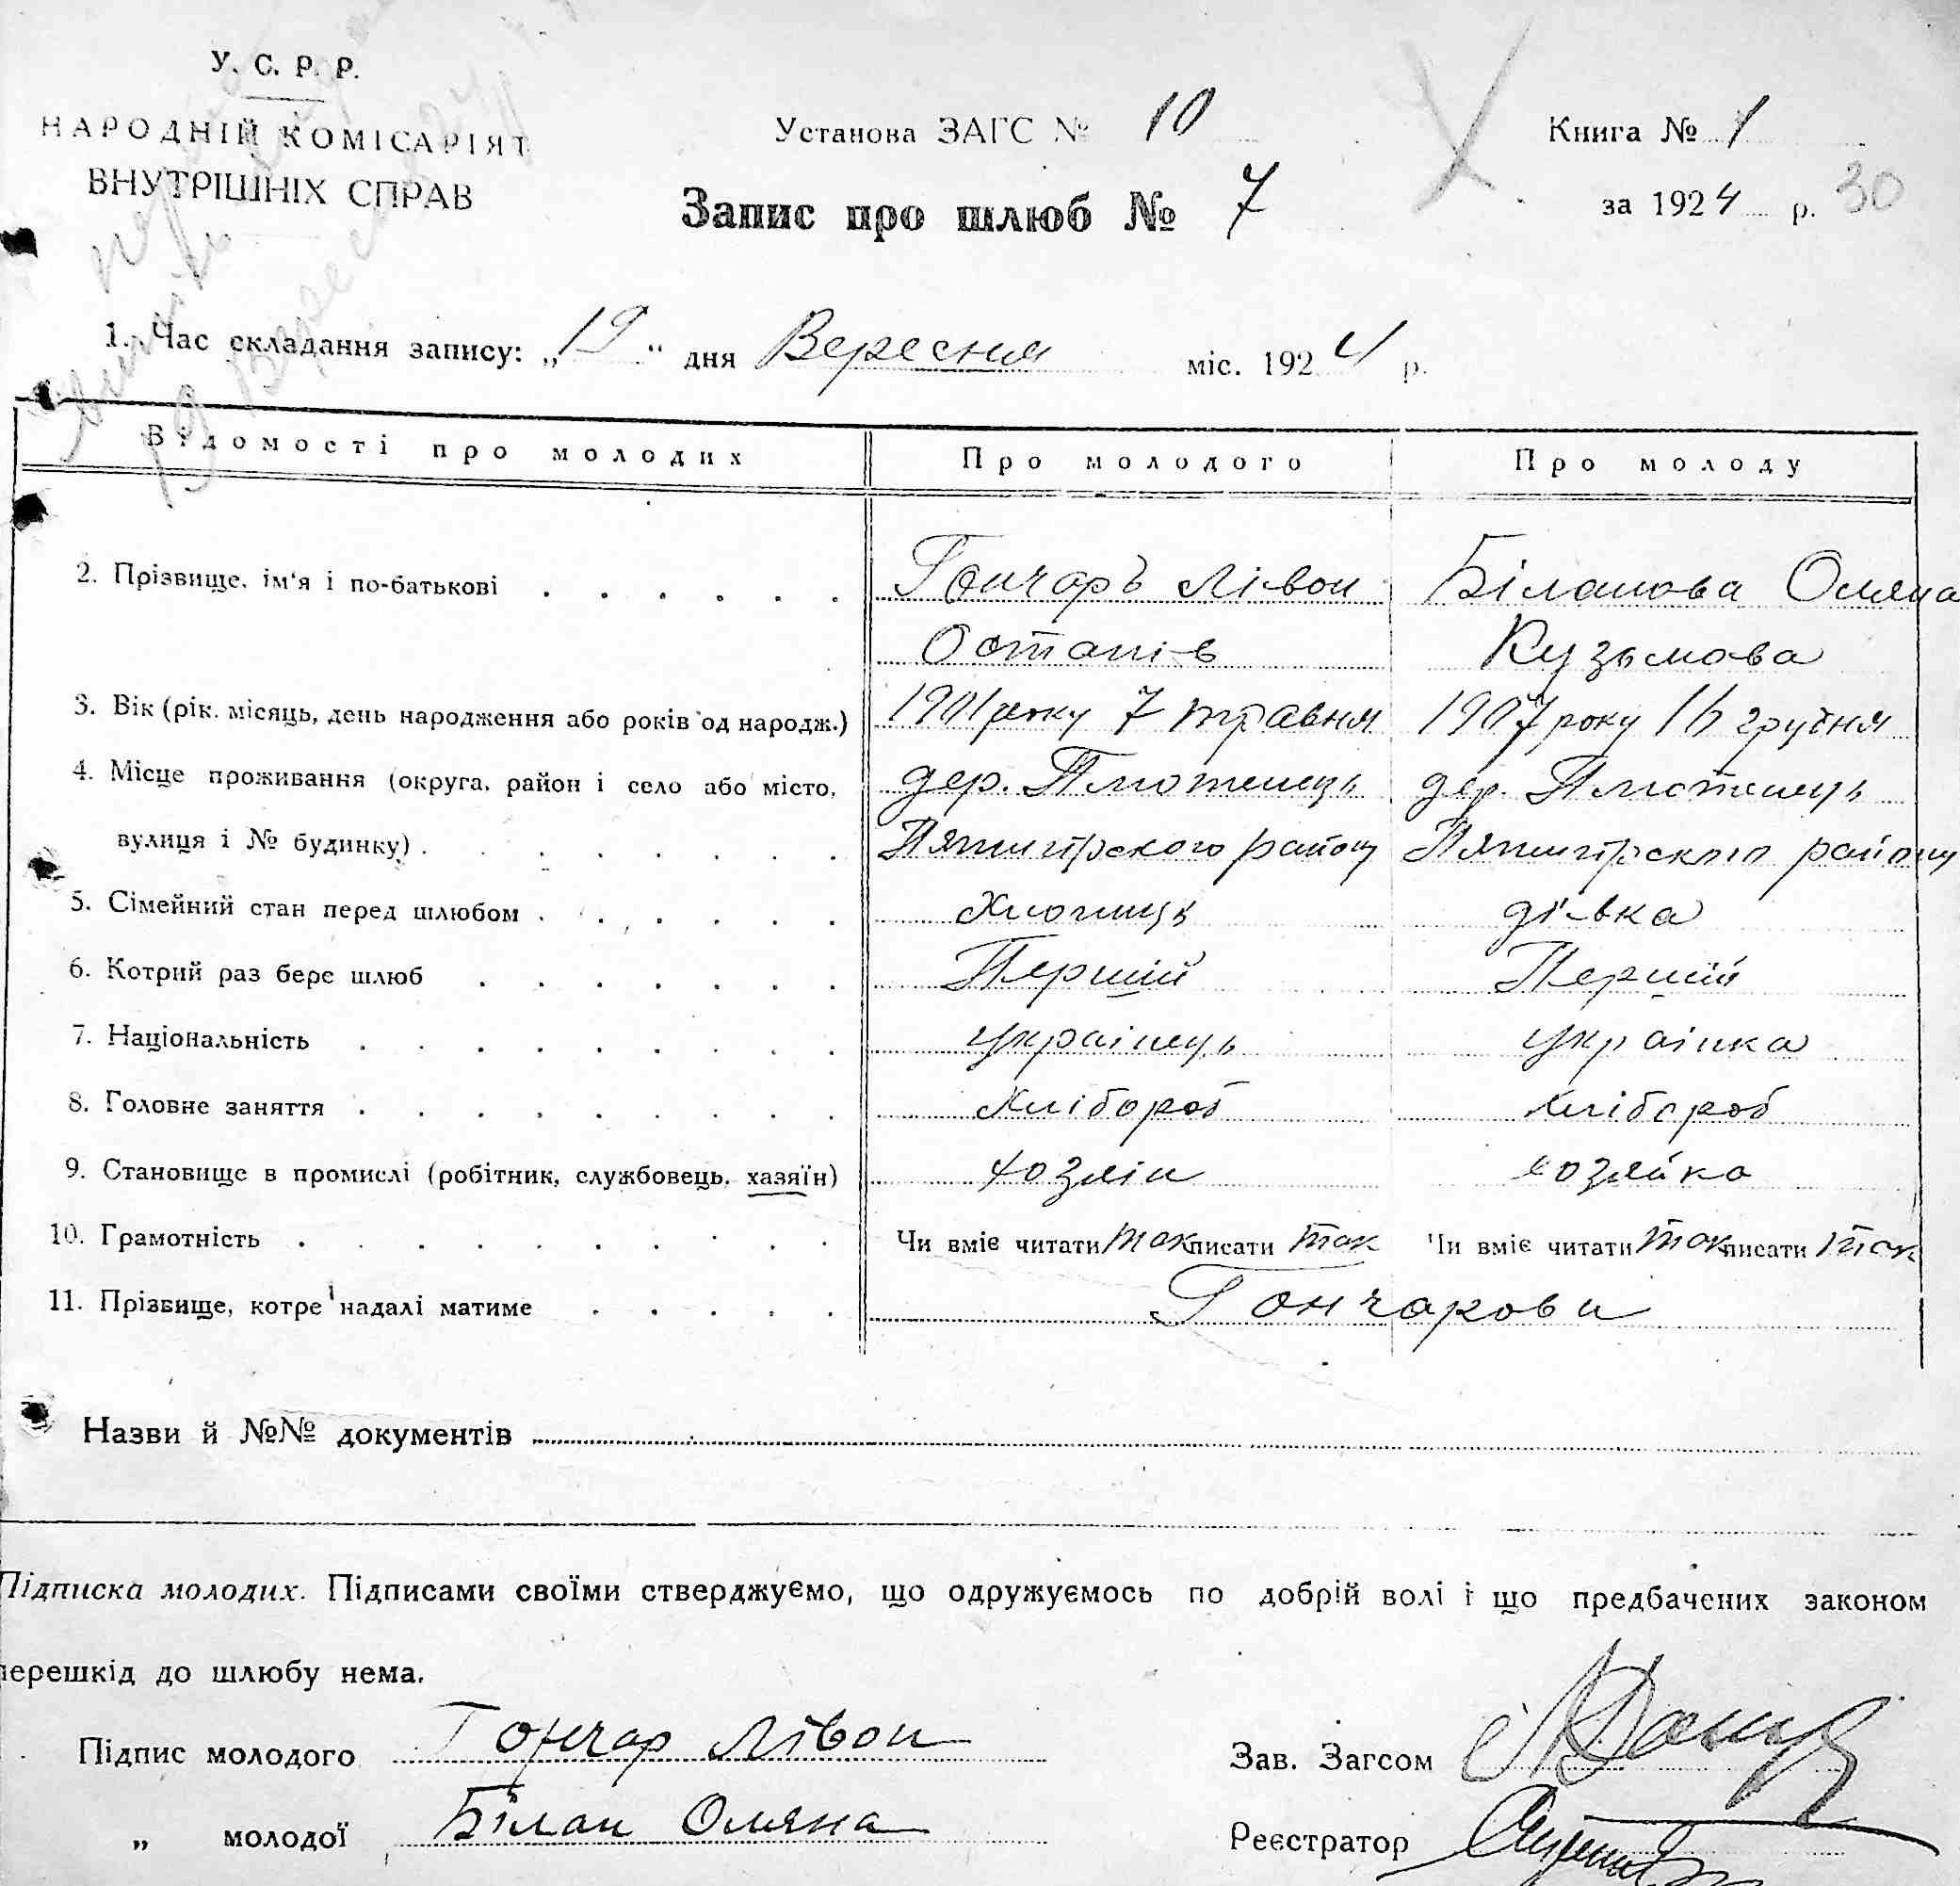 У. С. Р. Р.
НАРОДНІЙ КОМІСАРІЯТ
ВНУТРІШНІХ СПРАВ
Установа ЗАГС № 10
Книга № 1
Запис про шлюб № 7
за 1924 р. 30
1. Час складання запису: „19“ дня Вересня міс. 1924 р.
Відомості про молодих Про молодого Про молоду
2. Прізвище, ім'я і по-батькові Гончаръ Лівон Біланова Оляна
Остапів Кузьмова
3. Вік (рік, місяць, день народження або років од народж.) 1901 року 7 травня 1907 року 16 грудня
4. Місце проживання (округа, район і село або місто, дер. дер.
вулиця і № будинку) Пятигірского району Пятигірского району
5. Сімейний стан перед шлюбом Хлопиць дівка
6. Котрий раз бере шлюб Перший Перший
7. Національність українець українка
8. Головне заняття Хлібороб хлібороб
9. Становище в промислі (робітник, службовець, хазяїн) хозяін хозяйка
10. Грамотність Чи вміє читати так писати так Чи вміє читати так писати так
11. Прізвище, котре надалі матиме Гончарови
Назви й №№ документів
Підписка молодих. Підписами своїми стверджуємо, що одружуємось по добрій волі і що предбачених законом
перешкід до шлюбу нема.
Підпис молодого Гончар Лівон
Зав. Загсом
„ молодої Білан Оляна
Реєстратор